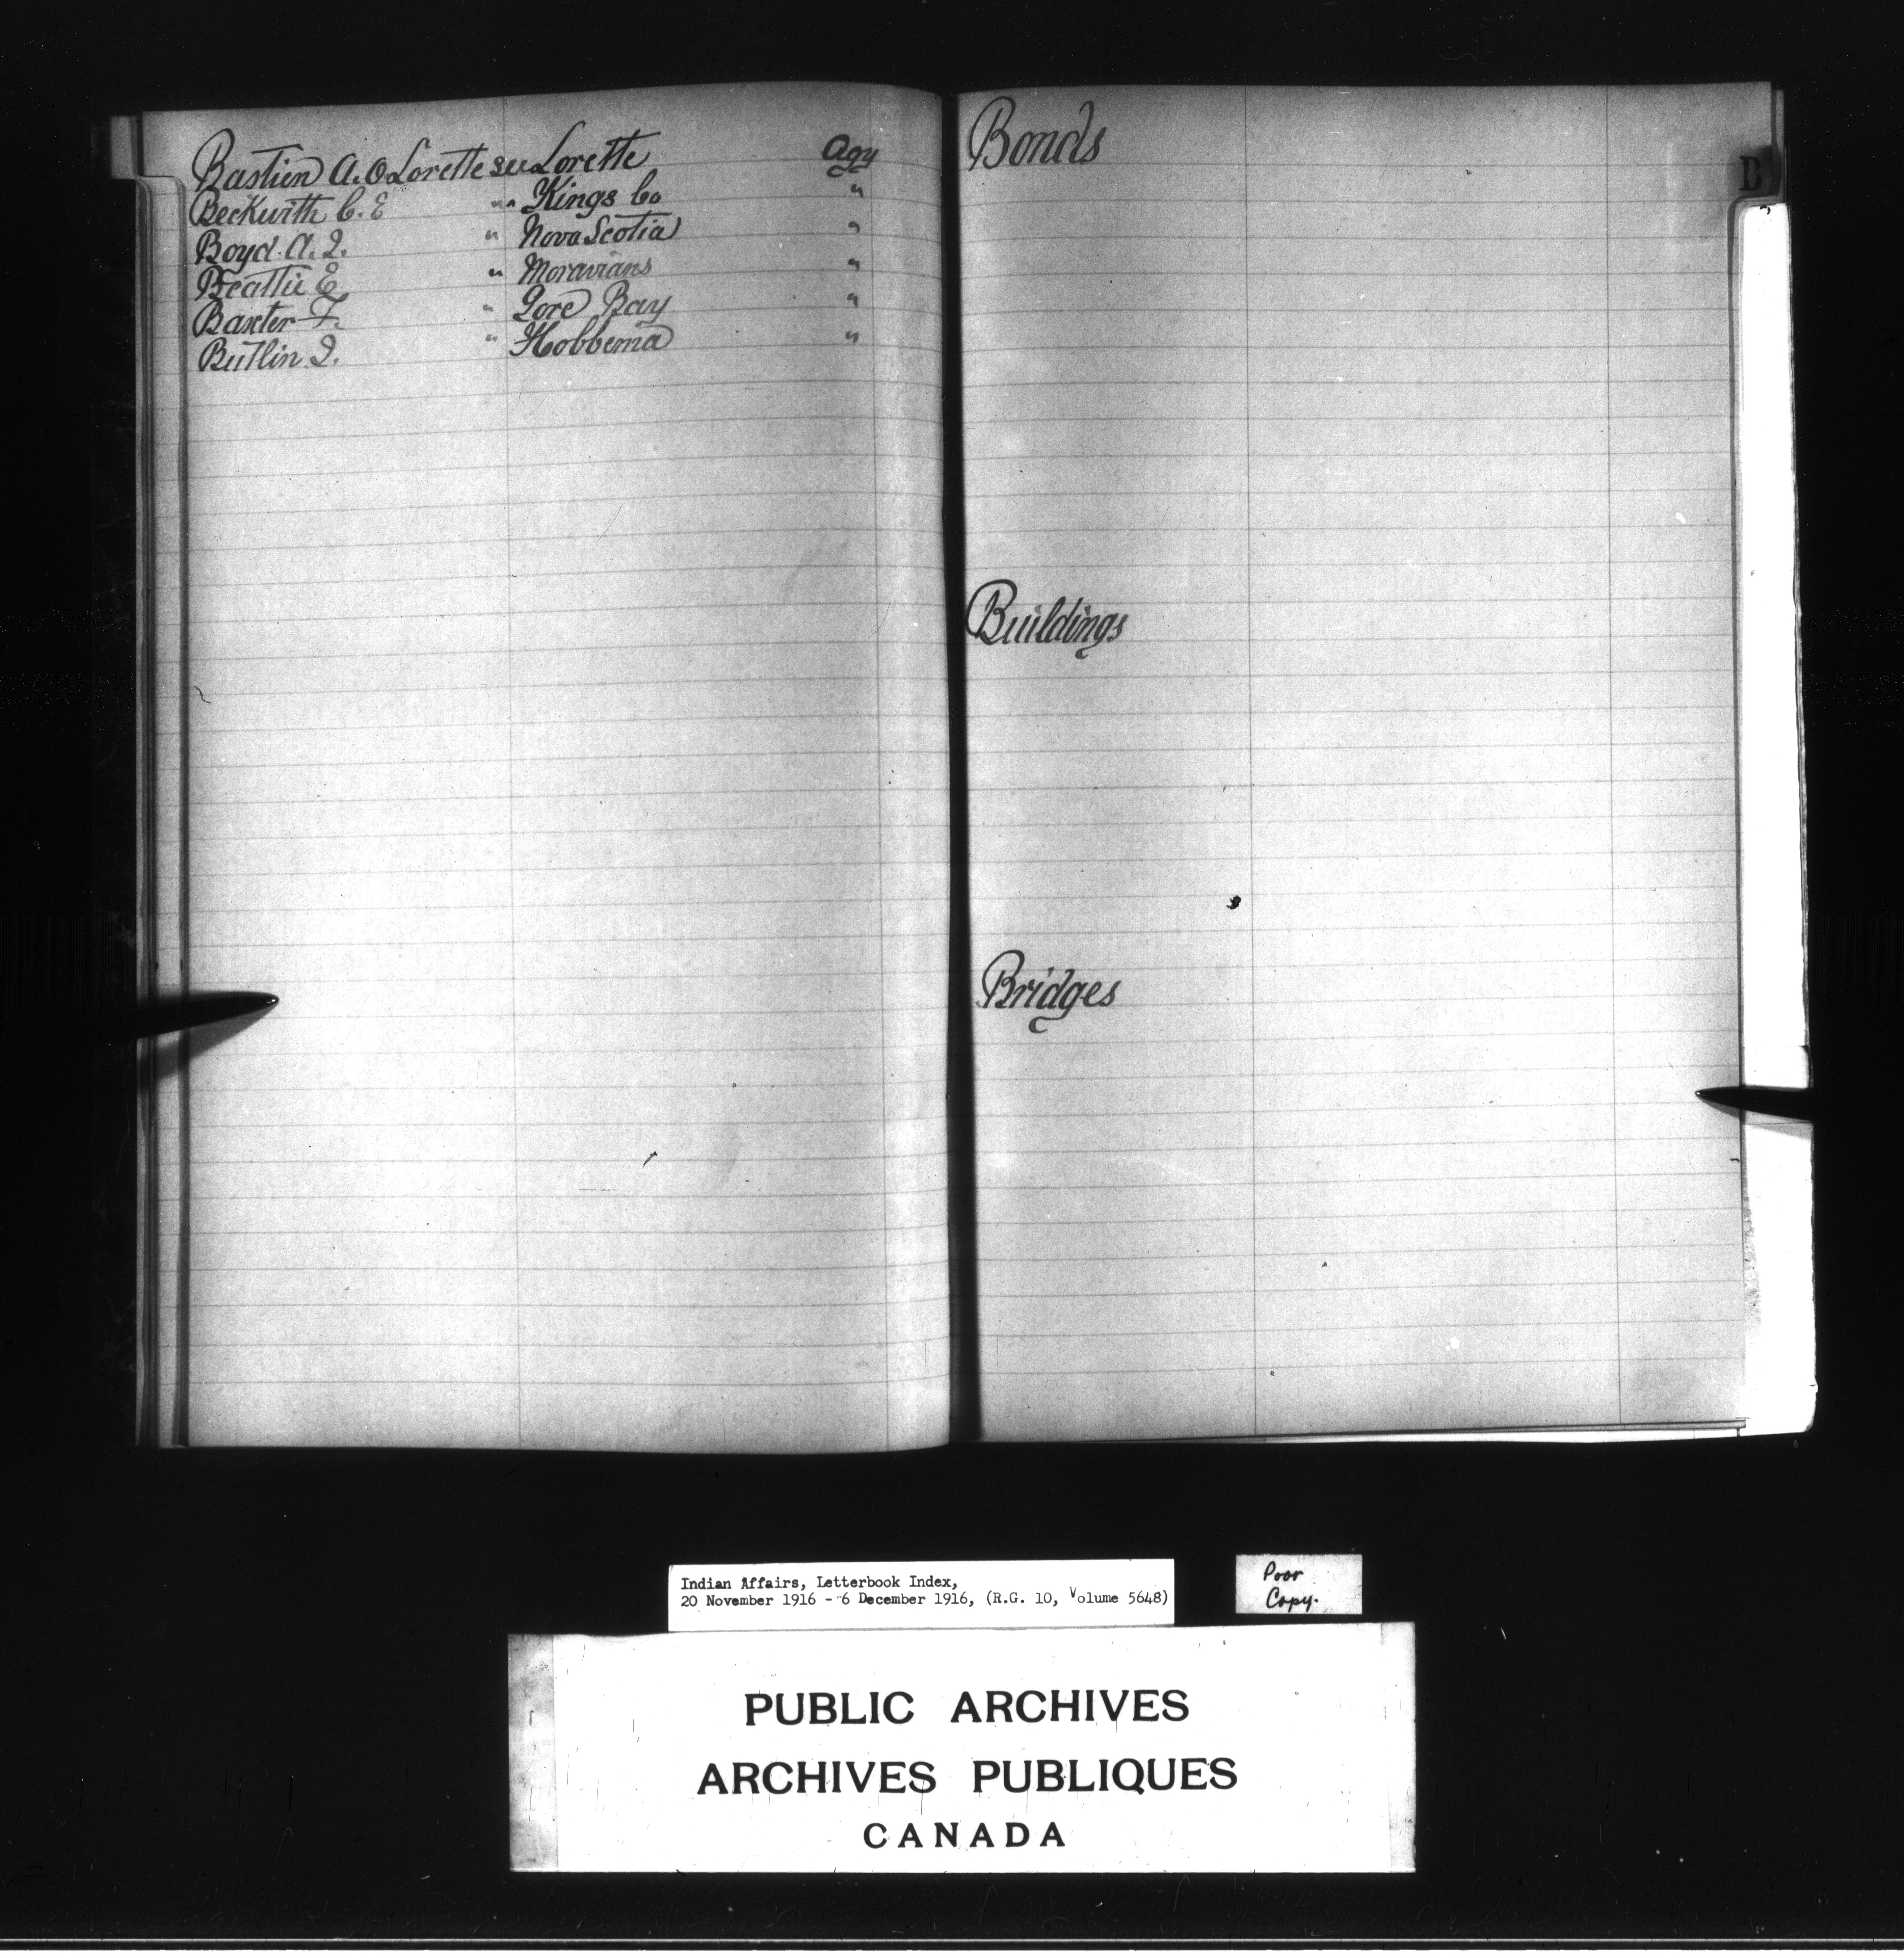 Bastien A. O. Lorette see Lorette Agy
Beckwith C. E " " Kings Co "
Boyd A. J. " Nova Scotia "
Beattie E " Moravians "
Baxter F. " Gore Bay "
Butlin J. " Hobbema "
Bonds
B
Buildings
Bridges
Indian Affairs, Letterbook Index,
20 November 1916 - 6 December 1916, (R.G. 10, Volume 5648)
Poor
Copy.
PUBLIC ARCHIVES
ARCHIVES PUBLIQUES
CANADA